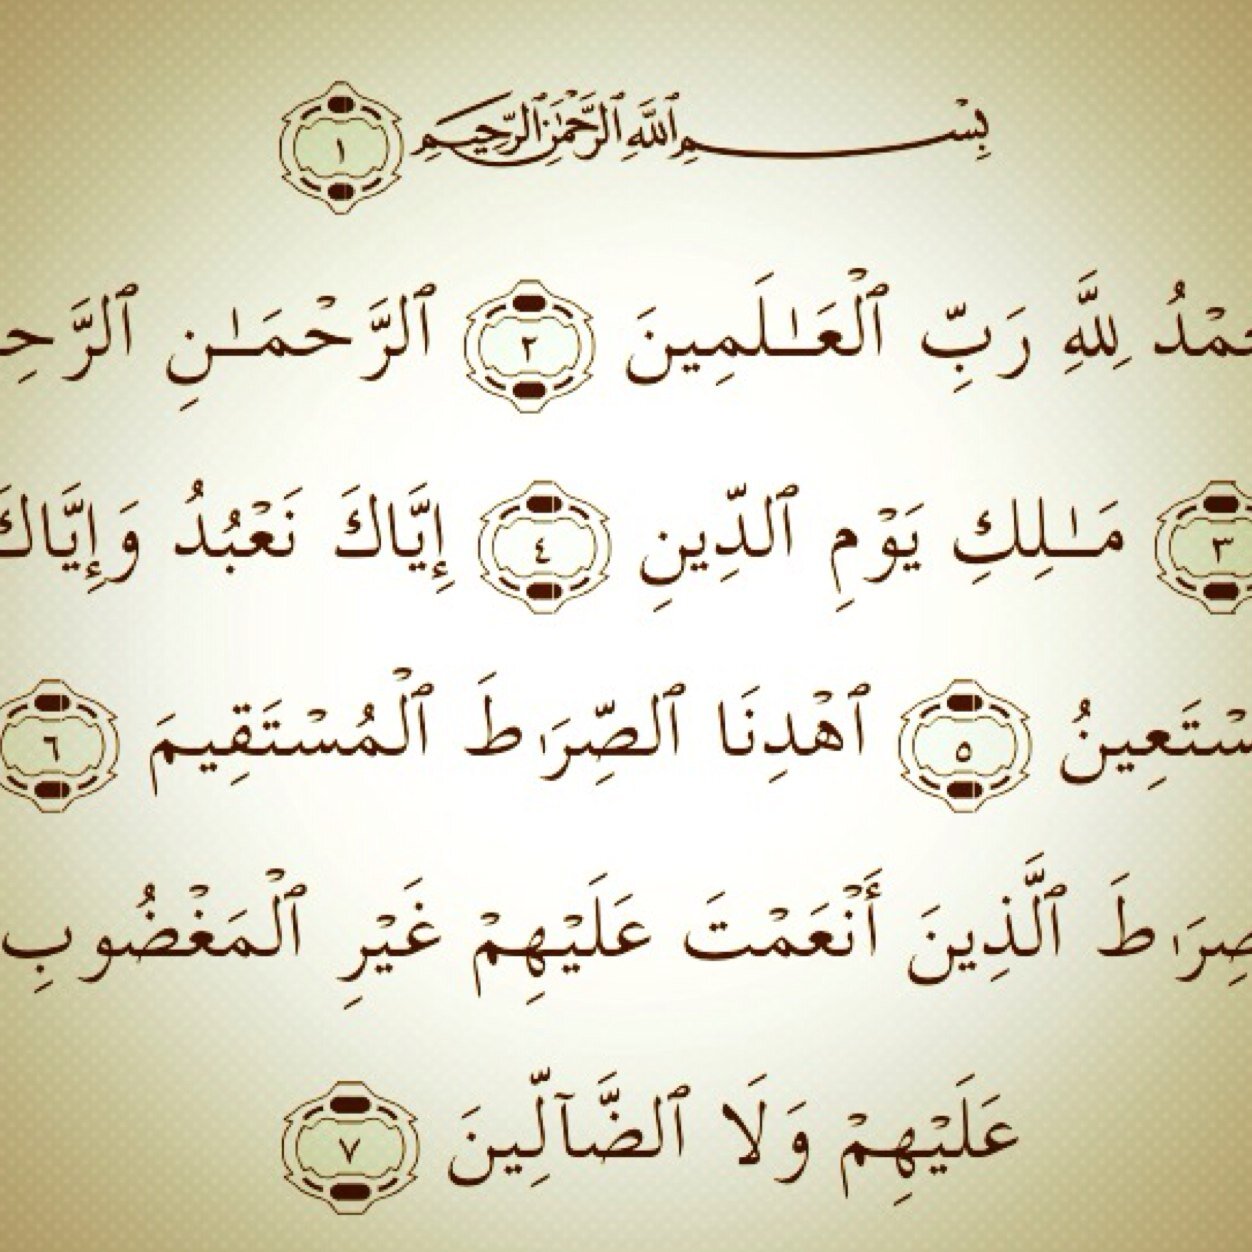 بِسْمِ ٱللَّهِ ٱلرَّحْمَٰنِ ٱلرَّحِيمِ ١
لِلَّهِ رَبِّ ٱلْعَـٰلَمِينَ ٢ ٱلرَّحْمَـٰنِ
٣ مَـٰلِكِ يَوْمِ ٱلدِّينِ ٤ إِيَّاكَ نَعْبُدُ وَإِيَّاكَ
٥ ٱهْدِنَا ٱلصِّرَٰطَ ٱلْمُسْتَقِيمَ ٦
صِرَٰطَ ٱلَّذِينَ أَنْعَمْتَ عَلَيْهِمْ غَيْرِ ٱلْمَغْضُوبِ
عَلَيْهِمْ وَلَا ٱلضَّآلِّينَ ٧